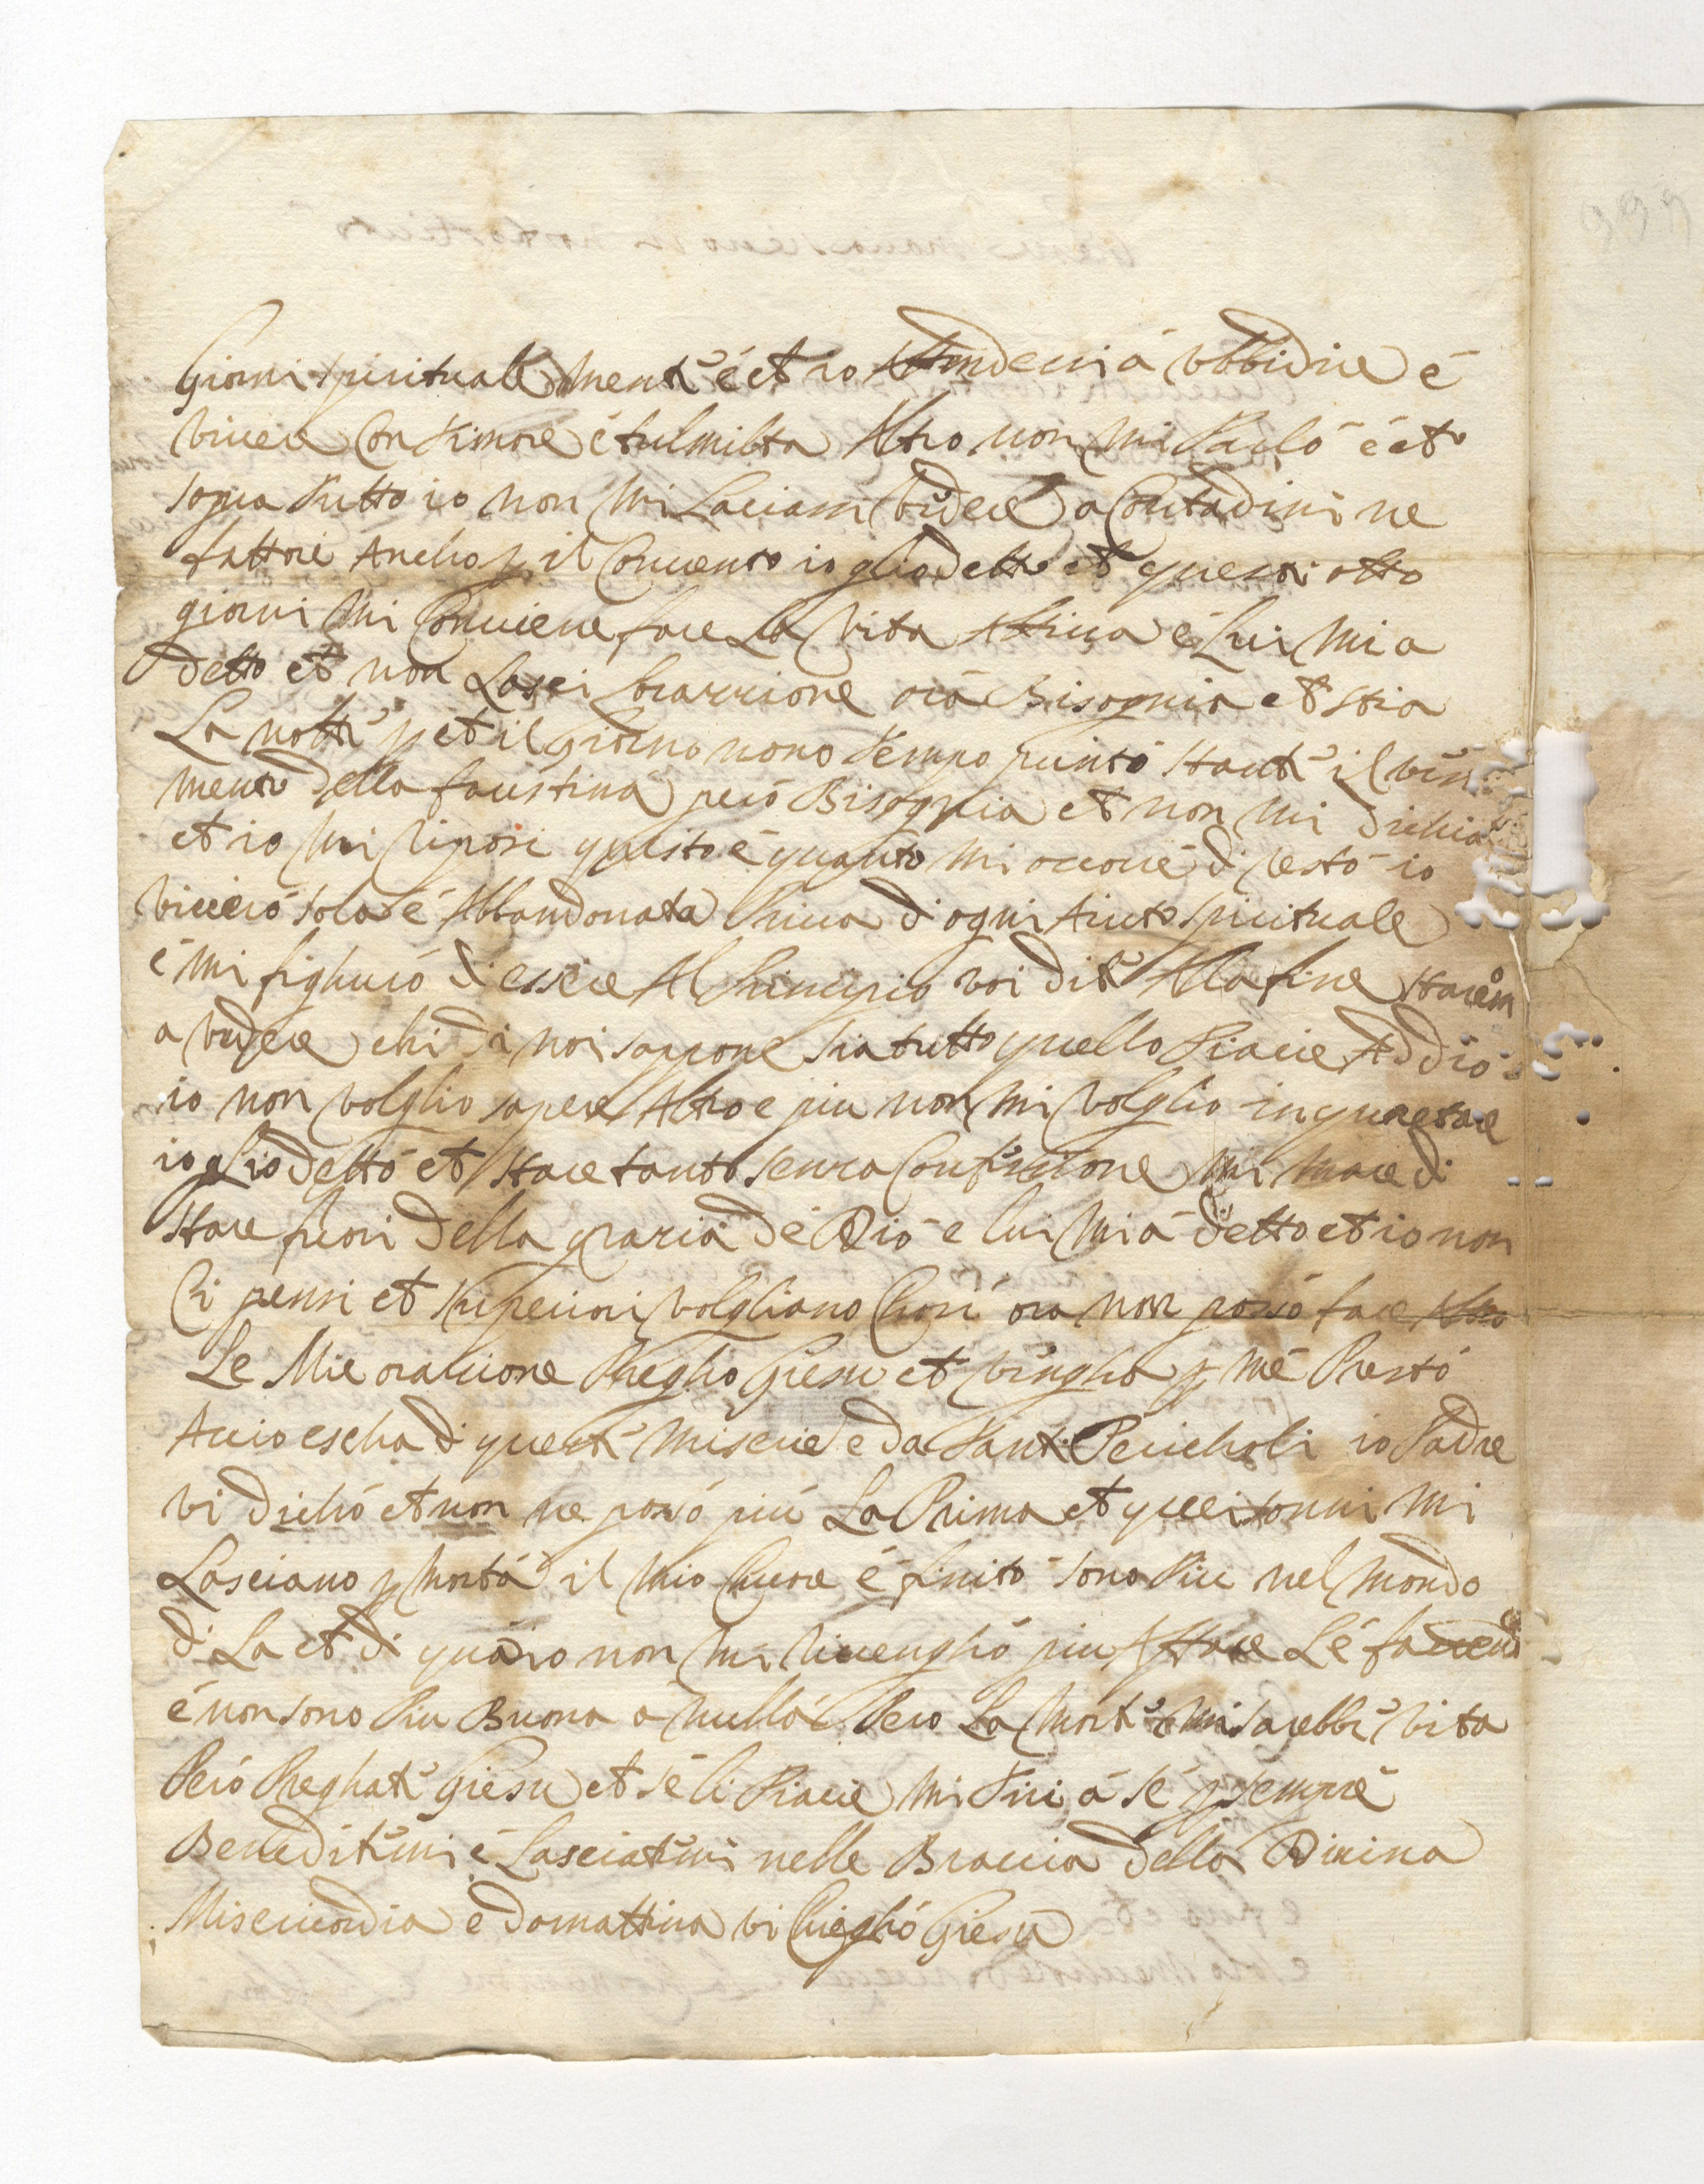 Giorni spiritualemente é et io Attendessi á Ubbidire é
vivere Con timore é tulmilta Altro non mi Parló é et
sopra tutto io non mi Laciassi videre a Contadini ne
fattore Ancho p il Convento io gliodetto et questi otto
giorni Mi Conviene fare La Vita Attiva é Lui Mi a
detto et non Lasci Lorazzione ora Bisognia et Stia
La notte p et il giorno nono tempo punto Stante il vesti
mento della faustina peró Bisognia et non mi dichia
et io mi riposi questo é quanto mi occorre di resto io
viveró sola é Abbandonata Priva d ogni Aiuto spirituale
é mi fighuró di essere Al Principio voi dite Alla fine Starem
a vedere chi di noi sappone sia tutto quello Piacie Addio
io non volglio sapere Altro e piu non mi volglio inquetare
io gliodetto et Stare tanto senza Confessione mi pare di
Stare fuori della grazia de Dio e lui Mi á detto et io non
Ci pensi et superiori volgliano Chosi ora non possó fare
Le Mie orazzione Preglio Giesu et venglia p me Prestó
Accio escha di queste Miserie e da tanti Pericholi io Padre
vi dichó et non ne possó piú La Prima et quei sonni Mi
Lasciano p morta il Mio Chuore é finitó sono Piu nel Mondo
di La et di quá io non mi rivenghó piu A fare Lé faccende
é non sono Piu Buona a nulla Pero La Morte mi sarebbe vita
Peró Preghate Giesu et sé li Piacie Mi tiri á sé p sempre
Beneditemi é Lasciatemi nelle Braccia della Divina
Misericordia e domattina vi Chieghó Giesu
999